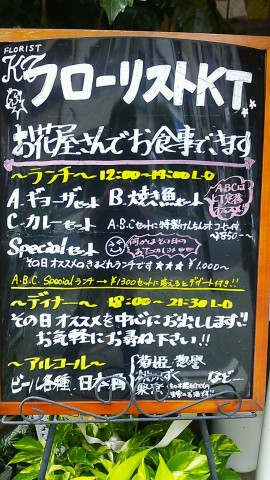 FLORIST
KT
フローリストKT
お花屋さんでお食事できます
～ランチ～ 12:00～14:00 L.O
A.ギョーザセット B.焼き魚セット
C.カレーセット
ABCは
¥850
Specialセット
何かはその日の
おたのしみ
その日オススメのきまぐれランチです★★★ ¥1,000～
A.B.C. Specialランチ→¥1300セットに変えるとデザート付き!!
～ディナー～ 18:00～21:30 L.O
その日オススメを中心にお出しします!!
お気軽にお尋ね下さい!!
～アルコール～
ビール各種、日本酒
菊姫
など…